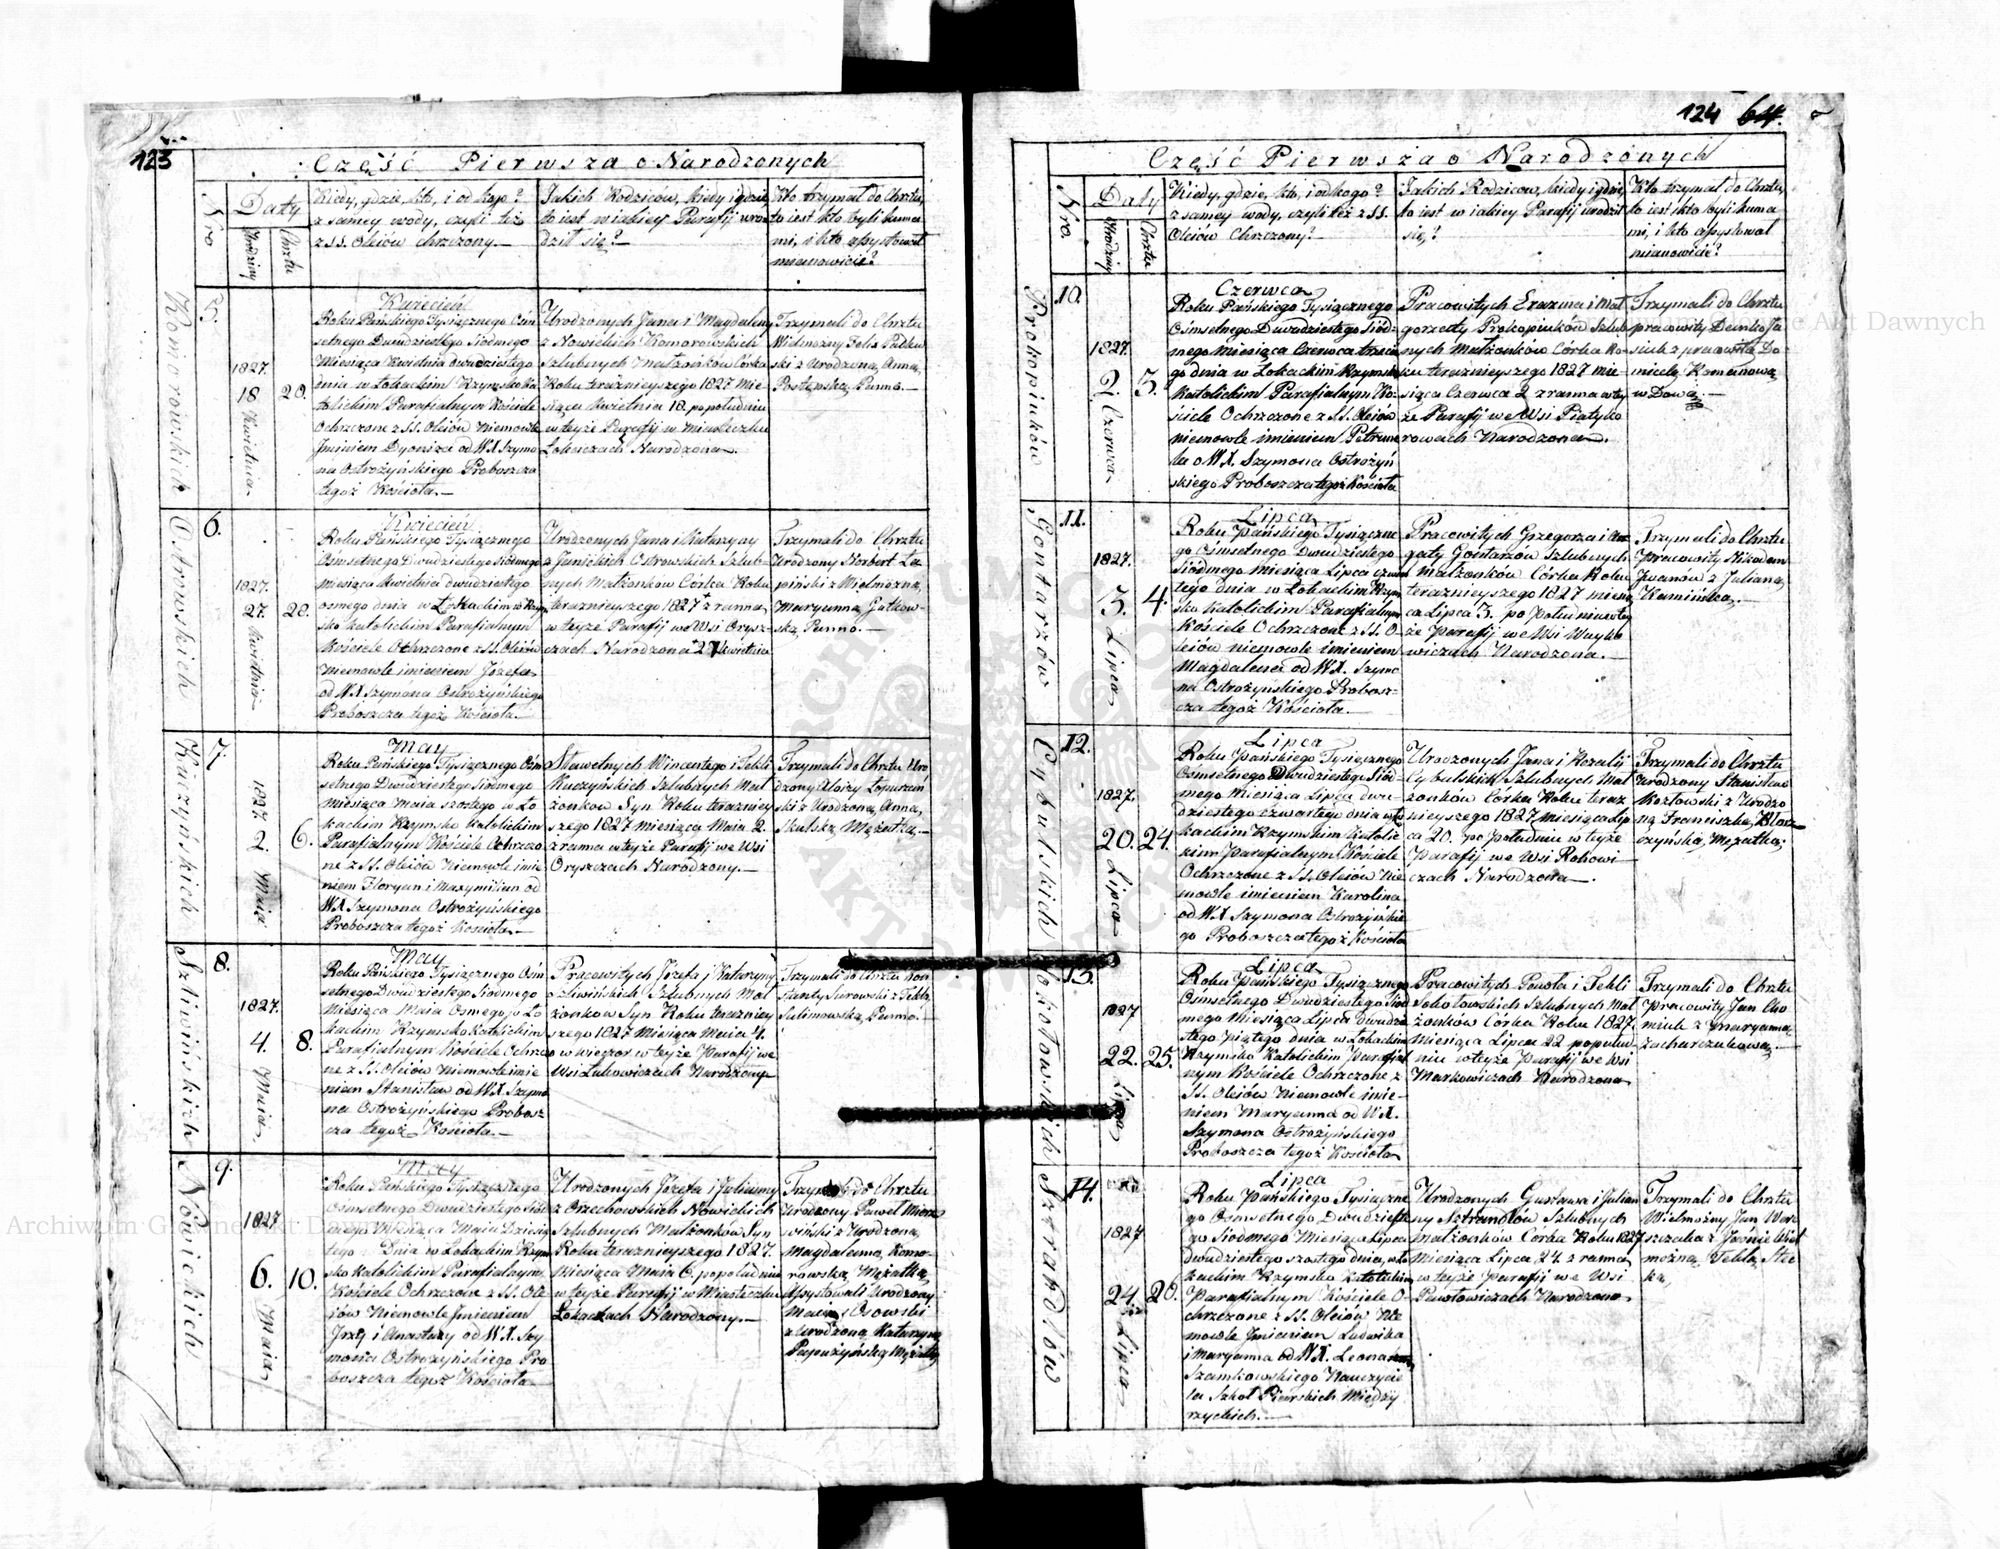 123
Część Pierwsza o Narodzonych
Nro.
Daty
Urodziny
Chrztu
Kiedy, gdzie, kto, i od kogo?
z samey wody, czyli też
z SS. Oleiów chrzczony.—
Jakich Rodziców, kiedy i gdzie,
to iest w iakiey Parafij uro-
dził się?—
Kto trzymał do Chrztu,
to iest kto byli kuma
mi, i kto assystował
mianowicie?
Komorowskich
5.
1827
18 Kwietnia
20.
Kwiecień
Roku Pańskiego Tysiącznego Ośm
setnego Dwudziestego Siódmego
Miesiąca Kwietnia dwudziestego
dnia w Łokackim Rzymsko Ka
tolickim Parafialnym Kościele
Ochrzczone z SS. Oleiów Niemowle
Imieniem Dyoniza od WX Szymo
na Ostrożyńskiego Proboszcza
tegoż Kościoła.—
Urodzonych Jana i Magdaleny
z Nowickich Komorowskich
Szlubnych Małżonków Córka
Roku teraźnieyszego 1827 Mie
siąca Kwietnia 18. po południu
w teyże Parafij w Miasteczku
Łokaczach Narodzona.—
Trzymali do Chrztu
Wielmożny Felix
ski z Urodzoną Anną
Panno.—
Ostrowskich
6.
1827.
27. Kwietnia
28.
Kwiecień
Roku Pańskiego Tysiącznego
Ośmsetnego Dwudziestego Siódmego
miesiąca Kwietnia dwudziestego
osmego dnia w Łokackim Rzym
sko Katolickim Parafialnym
Kościele Ochrzczone z SS. Oleiów
niemowle imieniem Józefa
od WX Szymona Ostrożyńskiego
Proboszcza tegoż Kościoła.—
Urodzonych Jana i Katarzyny
z Ostrowskich Szlub-
nych Małżonków Córka Roku
teraznieyszego 1827 z ranna
w teyże Parafij we Wsi Orysz-
czach Narodzona 27 Kwietnia
Trzymali do Chrztu
Urodzony Norbert Ła
piński z Wielmożną
Maryanną Gutkow-
ską Panno.—
Kuczyńskich
7.
1827
2. Maia
6.
May
Roku Pańskiego Tysiącznego Ośm
setnego Dwudziestego Siódmego
miesiąca Maia szostego w Ło
kackim Rzymsko Katolickim
Parafialnym Kościele Ochrzczo
ne z SS. Oleiów Niemowle imie
niem Floryan i Maxymilian od
WX Szymona Ostrożyńskiego
Proboszcza tegoż Kościoła.—
Sławetnych Wincentego i Tekli
Kuczyńskich Szlubnych Mał
żonków Syn Roku teraźniey
szego 1827 miesiąca Maia 2.
z ranna w teyże Parafij we Wsi
Oryszczach Narodzony.—
Trzymali do Chrztu Uro
dzony Aloizy Łopuszań
ski z Urodzoną Anną
Skulską Mężatką.—
Szliwińskich
8.
1827.
4. Maia
8.
May
Roku Pańskiego Tysiącznego Ośm
setnego Dwudziestego Siódmego
Miesiąca Maia Osmego w Ło
kackim Rzymsko Katolickim
Parafialnym Kościele Ochrzczo
ne z SS. Oleiów Niemowle imie
niem Stanisław od WX Szymo
na Ostrożyńskiego Probosz
cza tegoż Kościoła.—
Pracowitych Józefa i Katarzyny
Szliwińskich Szlubnych Mał
żonków Syn Roku teraźniey
szego 1827 Miesiąca Maia 4.
w wieczor w teyże Parafij we
Wsi Łukowiczach Narodzony
Trzymali do Chrztu Kon
stanty Surowski z Teklą
Sulimowską Panno.—
Nowickich
9.
1827
6. Maia
10.
May
Roku Pańskiego Tysiącznego
Ośmsetnego Dwudziestego Siód
mego Miesiąca Maia Dziesią
tego Dnia w Łokackim Rzym
sko Katolickim Parafialnym
Kościele Ochrzczone z SS. Ole
iów Niemowle Imieniem
i Anastazy od WX. Szy
mona Ostrożyńskiego Pro
boszcza tegoż Kościoła
Urodzonych Józefa i Julianny
z Orzechowskich Nowickich
Szlubnych Małżonków Syn
Roku teraznieyszego 1827.
Miesiąca Maia 6. po południu
w teyże Parafij w Miasteczku
Łokaczach Narodzony.—
Trzymali do Chrztu
Urodzony Paweł
wiński z Urodzoną
Magdaleną Komo-
rowską Mężatką
Assystowali Urodzony
Maciej Osowski
z Urodzoną Katarzyną
Mężatką
124 64.
Część Pierwsza o Narodzonych
Nro.
Daty
Urodziny
Chrztu
Kiedy, gdzie, kto, i od kogo?
z samey wody, czyli też z SS.
Oleiów Chrzczony?—
Jakich Rodziców, kiedy i gdzie,
to iest w iakiey Parafij urodził
się?
Kto trzymał do Chrztu,
to iest kto byli kuma
mi, i kto assystował
mianowicie?
Prokopiuków
10.
1827.
2. Czerwca
3.
Czerwca
Roku Pańskiego Tysiącznego
Ośmsetnego Dwudziestego Siód-
mego Miesiąca Czerwca trzecie
go dnia w Łokackim Rzymsko
Katolickim Parafialnym Ko-
ściele Ochrzczone z SS. Oleiów
niemowle imieniem Petrune
la o WX. Szymona Ostrożyń
skiego Proboszcza tegoż Kościoła
Pracowitych Erazma i Mał
gorzatty Prokopiuków Szlub
nych Małżonków Córka Ro-
ku teraznieyszego 1827 Mie-
siąca Czerwca 2 z ranna w tey
że Parafij we Wsi Piatyko
rowcach Narodzona.
Trzymali do Chrztu
pracowity Demko
siuk z pracowitą Do-
minicellą Romanową
Wdową.—
Gontarzów
11.
1827.
3. Lipca
4.
Lipca
Roku Pańskiego Tysiączne
go Ośmsetnego Dwudziestego
Siódmego miesiąca Lipca czwar
tego dnia w Łokackim Rzym
sko Katolickim Parafialnym
Kościele Ochrzczone z SS. O-
leiów niemowle imieniem
Magdalena od WX. Szymo
na Ostrożyńskiego Probosz-
cza tegoż Kościoła.—
Pracowitych Grzegorza i Aa
gaty Gontarzów Szlubnych
małżonków Córka Roku
teraznieyszego 1827 miesią
ca Lipca 3. po Południu w tey
że Parafij we Wsi Wayko
wiczach Narodzona.—
Trzymali do Chrztu
Pracowity Nikodem
Iwanów z Julianą
Kamińską.—
Cybulskich
12.
1827.
20. Lipca
24.
Lipca
Roku Pańskiego Tysiącznego
Ośmsetnego Dwudziestego Siód-
mego Miesiąca Lipca dwu-
dziestego czwartego dnia w Ło
kackim Rzymskim Katolic
kim Parafialnym Kościele
Ochrzczone z SS. Oleiów Nie
mowle imieniem Karolina
od WX Szymona Ostrożyńskie
go Proboszcza tegoż Kościoła
Urodzonych Jana i Rozalij
Cybulskich Szlubnych Mał
żonków Córka Roku teraz
nieyszego 1827 miesiąca Lip
ca 20. po Południu w teyże
Parafij we Wsi Rohowi
czach Narodzona.—
Trzymali do Chrztu
Urodzony Stanisław
Kozłowski z Urodzo
ną Franciszką
czyńską Mężatką.
Sokołowskich
13.
1827
22. Lipca
25.
Lipca
Roku Pańskiego Tysiącznego
Ośmsetnego Dwudziestego Siód
mego Miesiąca Lipca dwudzie
stego Piątego dnia w Łokackim
Rzymsko Katolickim Parafial
nym Kościele Ochrzczone z
SS. Oleiów Niemowle imie-
niem Maryanna od WX.
Szymona Ostrożyńskiego
Proboszcza tegoż Kościoła
Pracowitych Pawła i Tekli
Sokołowskich Szlubnych Mał
żonków Córka Roku 1827.
Miesiąca Lipca 22 popołud
niu w teyże Parafij we Wsi
Markowiczach Narodzona
Trzymali do Chrztu
Pracowity Jan Cho
miuk z Maryanną
Zacharczukową.—
Sztrandlów
14.
1827
24. Lipca
26.
Lipca
Roku Pańskiego Tysiączne
go Ośmsetnego Dwudzieste
go Siodmego Miesiąca Lipca
dwudziestego szostego dnia w Ło
kackim Rzymsko Katolickim
Parafialnym Kościele O
chrzczone z SS. Oleiów Nie
mowle Imieniem Ludwika
i Maryanna od WX. Leonarda
Szamkowskiego Nauczycie
la Szkoł Piiarskich Miedzy
rzyckich.—
Urodzonych Gustawa i Julian
ny Sztrandlów Szlubnych
Małżonków Córka Roku 1827
Miesiąca Lipca 24 z ranna
w teyże Parafij we Wsi
Pawłowiczach Narodzona
Trzymali do Chrztu
Wielmożny Jan
z Jaśnie Wiel
możną Teklą Stec
ką
Archiwum Główne Akt Dawnych
Archiwum Główne Akt Dawnych
ARCHIWUM GŁÓWNE AKT DAWNYCH